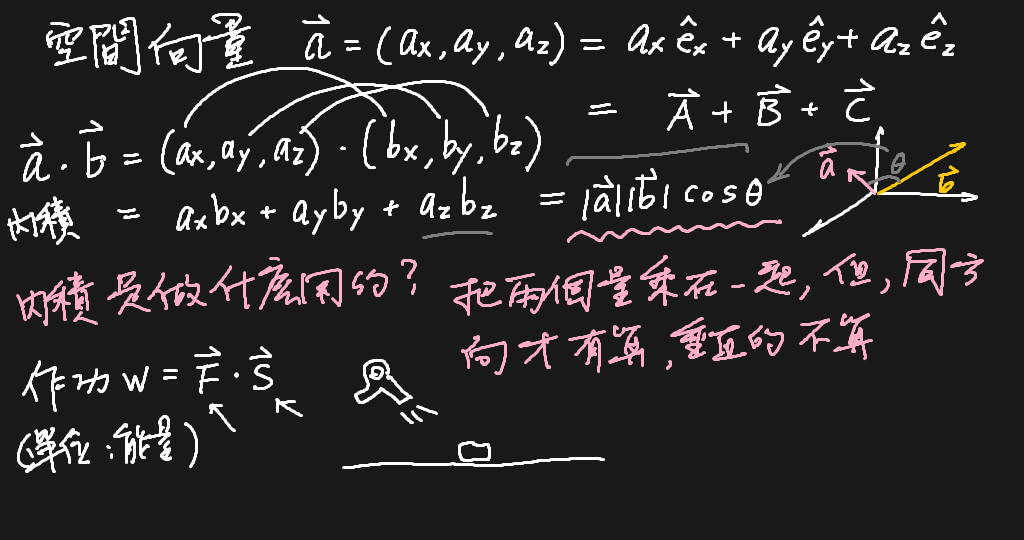 空間向量 \vec{a} = (ax, ay, az) = ax êx + ay êy + az êz
= \vec{A} + \vec{B} + \vec{C}
\vec{a} · \vec{b} = (ax, ay, az) · (bx, by, bz)
內積 = axbx + ayby + azbz = |\vec{a}||\vec{b}| cosθ
\vec{a} θ \vec{b}
內積是做什麼用的?
把兩個量乘在一起, 但, 同方
向才有算, 垂直的不算
作功 W = \vec{F} · \vec{S}
(單位:能量)